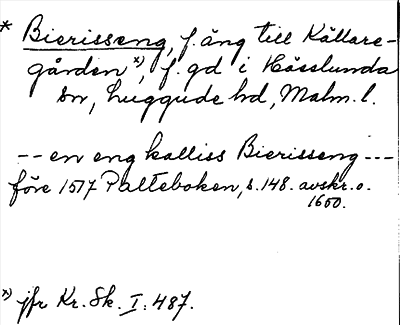 * Bierisseng, f. äng till Källare-
gården x), f. gd i Hässlunda
sn, Luggude hd, Malm. l.
-- en eng kalliss Bierisseng ---
före 1517 Palteboken, s. 148. avskr. o.
1600.
x) jfr Kr. Sk. I: 487.